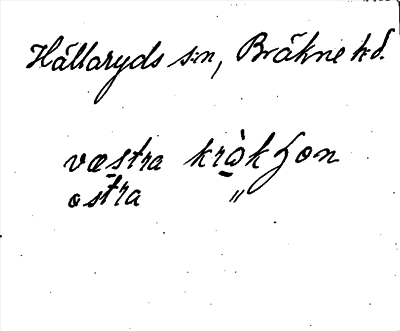 Hällaryds s:n, Bräkne hd.
væstra kråkʃon
ostra "